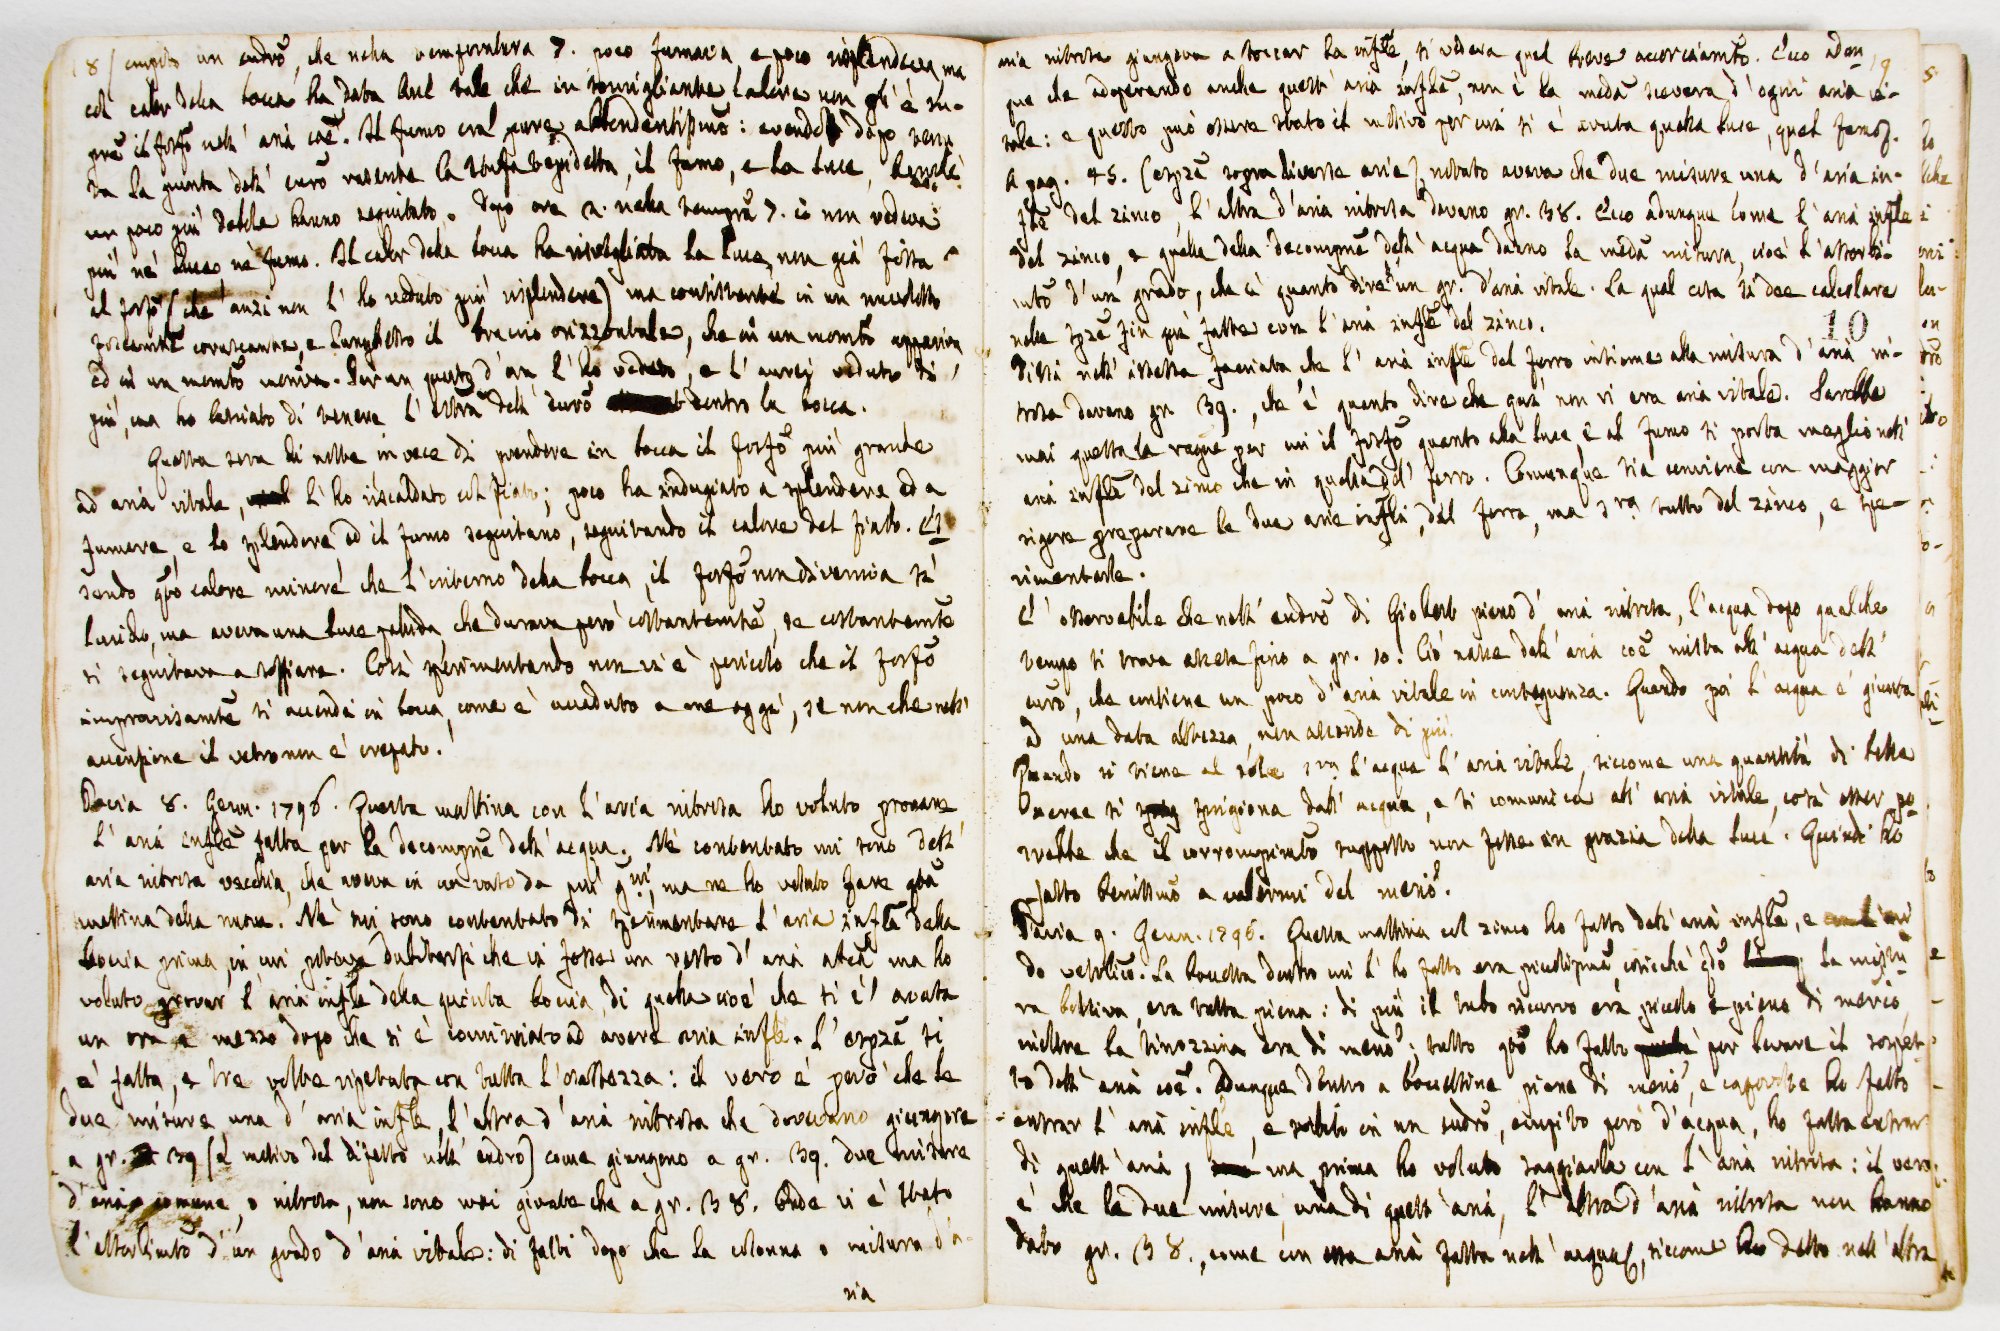 18 / empito un eudro, che nella temperatura 7. poco fumava, e poco risplendeva, ma
col calor della bocca ha data luce tale che in somigliante calore non gl' è su-
il fosfo nell' aria coe. Il fumo era pure abbondantissimo: avendo dopo
la la punta dell' euro rasente la stufa tepidetta, il fumo, e la luce,
un poco più debole hanno seguitato. Dopo ore 2. nella tempra 7. io non vedeva
più né luce, né fumo. Il calor della bocca ha risvegliata la luce, non già fissa
al fosfo (che anzi non l' ho veduto più risplendere) ma consistente in un nuvoletto
coruscante, e lunghetto il braccio orizzontale, che in un momto appariva
ed in un momto veniva. Per un quarto d' ora l' ho veduto, e l' avrei veduto di
più, ma ho lasciato di tenere l' dell' euro dentro la bocca.
Questa sera di notte invece di prendere in bocca il fosfo più grande
ad aria vitale, l' ho riscaldato col fiato; poco ha indugiato a splendere ed a
fumare, e lo splendere ed il fumo seguitano, seguitando il calore del fiato. Es
sendo qto calore minore che l' interno della bocca, il fosfo non diveniva sì
lucido, ma aveva una luce pallida, che durava però costantemte, se costantemte
si seguitava a soffiare. Così sperimentando non vi è pericolo che il fosfo
improvvisamte si accenda in bocca, come è accaduto a me oggi, se non che nell'
accensione il vetro non è crepato.
Pavia 8. Genn. 1796. Questa mattina con l' aria nitrosa ho voluto provare
l' aria infle fatta per la decompne dell' acqua. Nè contentato mi sono dell'
aria nitrosa vecchia, che aveva in un vaso da più gni, ma ne ho voluto fare qta
mattina della nuova. Nè mi sono contentato di sperimentare l' aria infle della
boccia prima, in cui poteva dubitarsi che vi fosse un resto d' aria atca ma ho
voluto provar l' aria infle della quinta boccia, di quella cioè che si è avuta
un ora e mezzo dopo che si è cominciato ad avere aria infle. L' espze si
è fatta, e tre volte ripetuta con tutta l' esattezza: il vero è però che le
due misure una d' aria infle, l' altra d' aria nitrosa che dovevano giungere
a gr. 39 (a motivo del difetto nell' eudro) come giungono a gr. 39. due misure
d' aria comune, o nitrosa, non sono mai giunte che a gr. 38. Onde vi è stato
l' assorbimto d' un grado d' aria vitale: di fatti dopo che la colonna o misura d' a-
ria
ria nitrosa giungeva a toccar la infle, si vedeva quel breve accorciamto. Ecco adun 19
que che adoperando anche quest' aria infle, non è la meda scevera d' ogni aria vi-
tale: e questo può essere stato il motivo per cui si è avuta quella luce, quel fumo.
A pag. 45. (espze sopra diverse arie) notato aveva che due misure una d' aria in-
fle del zinco, l' altra d' aria nitrosa davano gr. 38. Ecco adunque come l' aria infle
del zinco, e quella della decompne dell' acqua danno la meda misura, cioè l' assorbi-
mto d' un grado, che è quanto dire un gr. d' aria vitale. La qual cosa si dee calcolare
nelle spze fin quì fatte con l' aria infle del zinco.
10
Dissi nell' istessa facciata che l' aria infle del ferro insieme alla misura d' aria ni-
trosa davano gr. 39., che è quanto dire che quasi non vi era aria vitale. Sarebbe
mai questa la ragne per cui il fosfo quanto alla luce, e al fumo si porta meglio nell'
aria infle del zinco che in quella del ferro. Comunque sia conviene con maggior
rigore preparare le due arie infli, del ferro, ma sopra tutto del zinco, e spe-
rimentarle.
E' osservabile che nell' eudro di Giobert pieno d' aria nitrosa, l' acqua dopo qualche
tempo si trova ascesa fino a gr. 10. Ciò nasce dall' aria coe mista all' acqua dell'
euro, che contiene un poco d' aria vitale in conseguenza. Quando poi l' acqua è giunta
ad una data altezza, non ascende di più.
Quando si tiene al sole sopra l' acqua l' aria vitale, siccome una quantità di bolle
aeree si sprigiona dall' acqua, e si comunica all' aria vitale, così esser po
trebbe che il corrompimto suppsto non fosse in grazia della luce. Quindi ho
fatto benissmo a valermi del merio.
Pavia 9. Genn. 1796. Questa mattina col zinco ho fatto dell' aria infle, e
do vetriolico. La boccetta dentro cui l' ho fatto era piccolissima cosicchè la mistu
ra bolliva, era tutta piena: di più il tubo ricurvo era piccolo e pieno di merio,
inoltre la tinozzina era di merio; tutto qto ho fatto per levare il sospet
to dell' aria coe. Adunque dentro a boccettine piene di merio, e capovolte ho fatto
entrar l' aria infle, e subito in un eudro, empito però d' acqua, ho fatta entrar
di quest' aria, ma prima ho voluto saggiarla con l' aria nitrosa: il vero
è che le due misure, una di quest' aria, l' altra d' aria nitrosa non hanno
dato gr. 38., come con essa aria fatta nell' acqua, siccome ho detto nell' altra